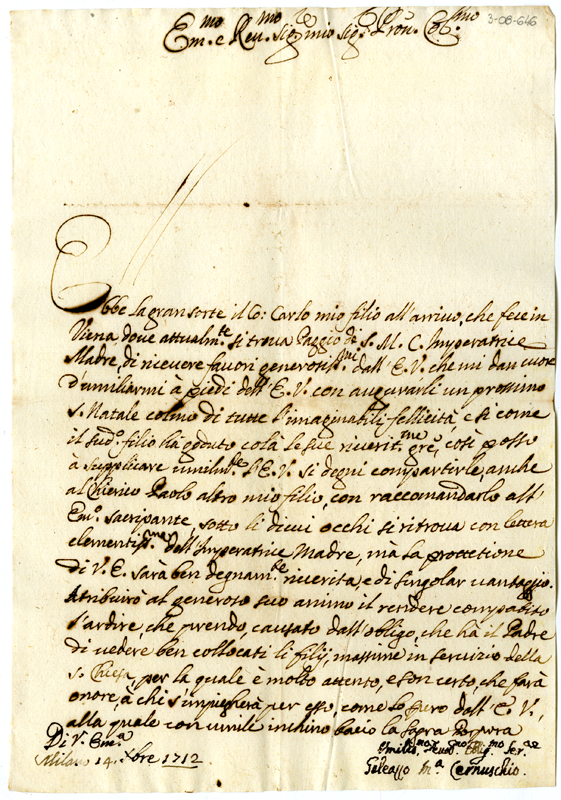 3-08-646
Em.mo e Reu.mo sig.re mio sig.re e Pron. Col.mo
Ebbe la gran sorte il Co: Carlo mio filio all'arriuo, che fece in
Viena doue attualm.te si troua Paggio di S. M. C. Imperatrice
Madre, di riceuere fauori generosiss.mi dall'E.V. che mi dan cuore
d'umiliarmi a piedi dell'E.V. con augurarli un prossimo
S. Natale colmo di tutte l'imaginabili fellicità, e si come
il sud.o filio hà goduto colà le sue riuerit.me gre, così posso
à supplicare umilm.te l'E.V. si degni compartirle, anche
al Chierico Paolo altro mio filio, con raccomandarlo all'
Em.o sacripante, sotto li dicui occhi si ritroua con lettera
clementiss.ma dell'Imperatrice Madre, mà la prottetione
di V.E. sarà ben degnam.te riuerita, e di singolar uantaggio.
Atribuirò al generoso suo animo il rendere compatito
l'ardire, che prendo, causato dall'obligo, che hà il Padre
di uedere ben collocati li filij, massime in seruizio della
S. Chiesa, per la quale è molto attento, e son certo, che farà
onore, à chi s'impiegherà per esso, come lo spero dall'E.V.,
alla quale con umile inchino bacio la sagra Porpora
Di V. Em.a
Milano 14. Xbre 1712
Umilis.mo Deuo.mo Oblig.mo Ser.re
Galeazzo M.a Cernuschio.